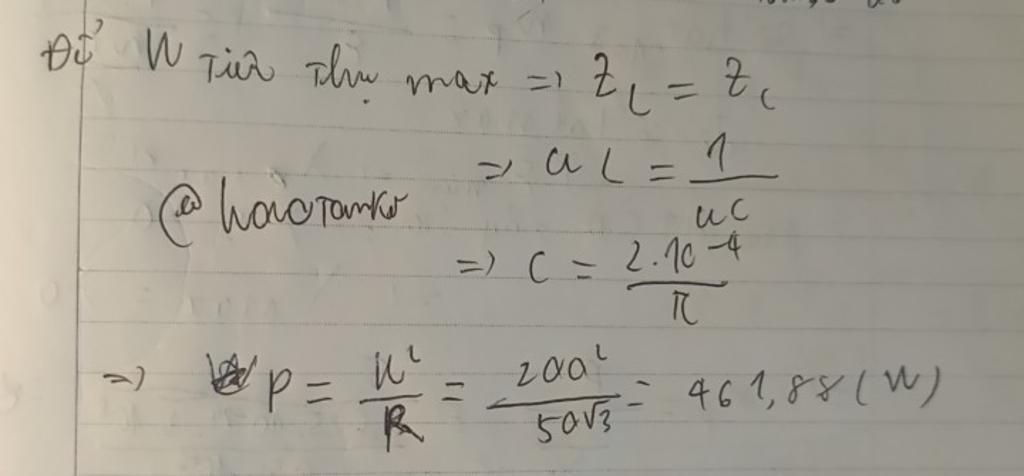 Để W Tiêu Thụ max => Z_L = Z_C
=> ωL = 1/ωC
@haoTamKr
=> C = 2.10^-4/π
=> P = U²/R = 200²/50√3 = 461,88 (W)